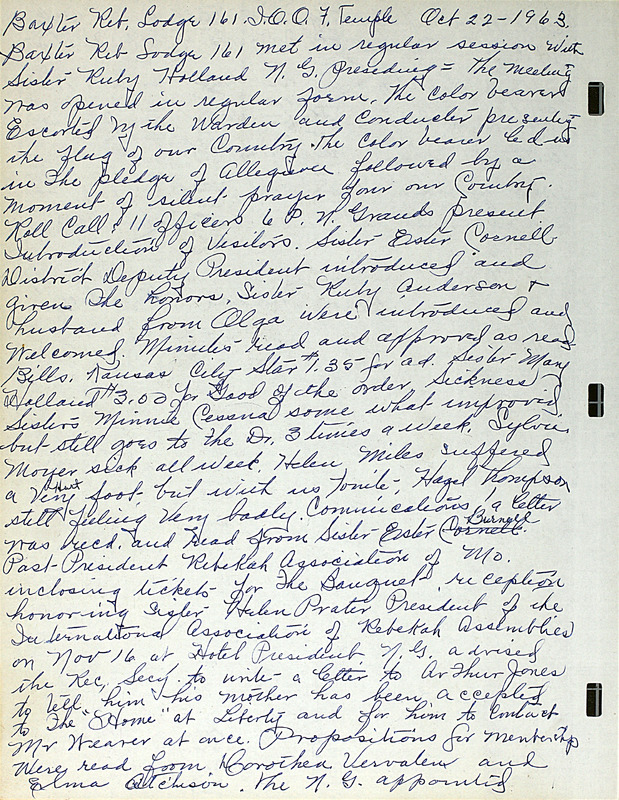 Baxter Reb. Lodge 161. I.O.O.F. Temple Oct 22-1963.
Baxter Reb Lodge 161 met in regular session with
Sister Ruby Holland N. G. Presiding = The meeting
was opened in regular form. The color bearer
Escorted by the Warden and Conductor presenting
the flag of our Country. The color bearer led us
in the pledge of Allegiance followed by a
moment of silent prayer for our Country.
Roll Call: 11 officers 6 P. N. Grands present.
Introduction of Visitors. Sister Ester Cornell
District Deputy President introduced and
given the honors. Sister Ruby Anderson +
husband from Olga were introduced and
Welcomed. Minutes read and approved as read
Bills. Kansas City Star $1.35 for ad. Sister Mary
Holland $3.00 for Good of the order. Sickness
Sisters Minnie Cessna some what improved
but still goes to the Dr. 3 times a week. Sylvia
Moyer sick all week. Helen Miles suffered
a Very Hurt foot but with us tonite, Hazel Thompson
still feeling Very badly. Communications, a letter
was recd. and read from Sister Ester Cornell Burnett
Past President Rebekah Association of Mo.
inclosing tickets for The Banquet, reception
honoring Sister Helen Prater President of the
International Association of Rebekah Assemblies
on Nov 16 at Hotel President N.G. advised
the Rec, Secy. to write a letter to Arthur Jones
to tell him his mother has been accepted
to The "Home" at Liberty and for him to Contact
Mr Weaver at once. Propositions for membership
Were read from Dorothea Vervalen and
Elma Atchison. The N. G. appointed